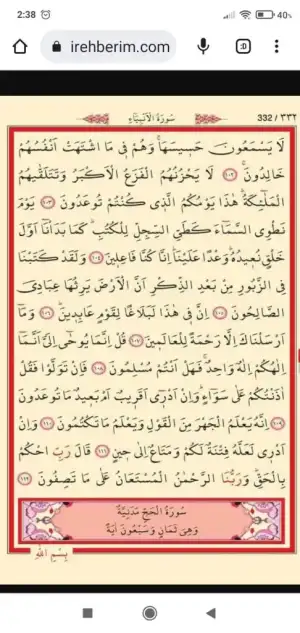 2:38
40%
irehberim.com
:D
332 / ٣٣٢
سُورَةُ الْاَنْبِيَٓاءِ
لَا يَسْمَعُونَ حَسٖيسَهَاۚ وَهُمْ فٖى مَا اشْتَهَتْ اَنْفُسُهُمْ
خَالِدُونَۚ ﴿١٠٢﴾ لَا يَحْزُنُهُمُ الْفَزَعُ الْاَكْبَرُ وَتَتَلَقّٰيهُمُ
الْمَلٰٓئِكَةُؕ هٰذَا يَوْمُكُمُ الَّذٖى كُنْتُمْ تُوعَدُونَ ﴿١٠٣﴾ يَوْمَ
نَطْوِى السَّمَٓاءَ كَطَىِّ السِّجِلِّ لِلْكُتُبِؕ كَمَا بَدَأْنَٓا اَوَّلَ
خَلْقٍ نُعٖيدُهُؕ وَعْدًا عَلَيْنَاؕ اِنَّا كُنَّا فَاعِلٖينَ ﴿١٠٤﴾ وَلَقَدْ كَتَبْنَا
فِى الزَّبُورِ مِنْ بَعْدِ الذِّكْرِ اَنَّ الْاَرْضَ يَرِثُهَا عِبَادِىَ
الصَّالِحُونَ ﴿١٠٥﴾ اِنَّ فٖى هٰذَا لَبَلَاغًا لِقَوْمٍ عَابِدٖينَؕ ﴿١٠٦﴾ وَمَٓا
اَرْسَلْنَاكَ اِلَّا رَحْمَةً لِلْعَالَمٖينَ ﴿١٠٧﴾ قُلْ اِنَّمَا يُوحٰٓى اِلَىَّ اَنَّمَٓا
اِلٰهُكُمْ اِلٰهٌ وَاحِدٌۚ فَهَلْ اَنْتُمْ مُسْلِمُونَ ﴿١٠٨﴾ فَاِنْ تَوَلَّوْا فَقُلْ
اٰذَنْتُكُمْ عَلٰى سَوَٓاءٍؕ وَاِنْ اَدْرٖٓى اَقَرٖيبٌ اَمْ بَعٖيدٌ مَا تُوعَدُونَ
﴿١٠٩﴾ اِنَّهُ يَعْلَمُ الْجَهْرَ مِنَ الْقَوْلِ وَيَعْلَمُ مَا تَكْتُمُونَ ﴿١١٠﴾ وَاِنْ
اَدْرٖى لَعَلَّهُ فِتْنَةٌ لَكُمْ وَمَتَاعٌ اِلٰى حٖينٍ ﴿١١١﴾ قَالَ رَبِّ احْكُمْ
بِالْحَقِّؕ وَرَبُّنَا الرَّحْمٰنُ الْمُسْتَعَانُ عَلٰى مَا تَصِفُونَ ﴿١١٢﴾
سُورَةُ الْحَجِّ مَدَنِيَّةٌ
وَهِىَ ثَمَانٍ وَسَبْعُونَ اٰيَةً
بِسْمِ اللّٰهِ